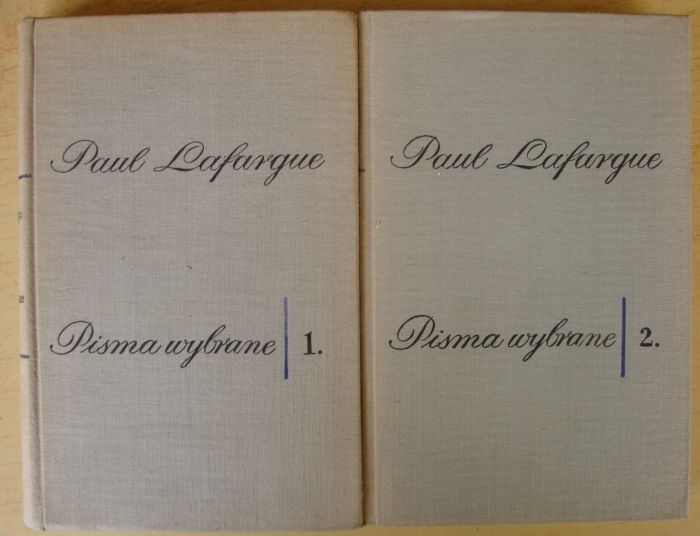 Paul Lafargue
Pisma wybrane 1.
Paul Lafargue
Pisma wybrane 2.